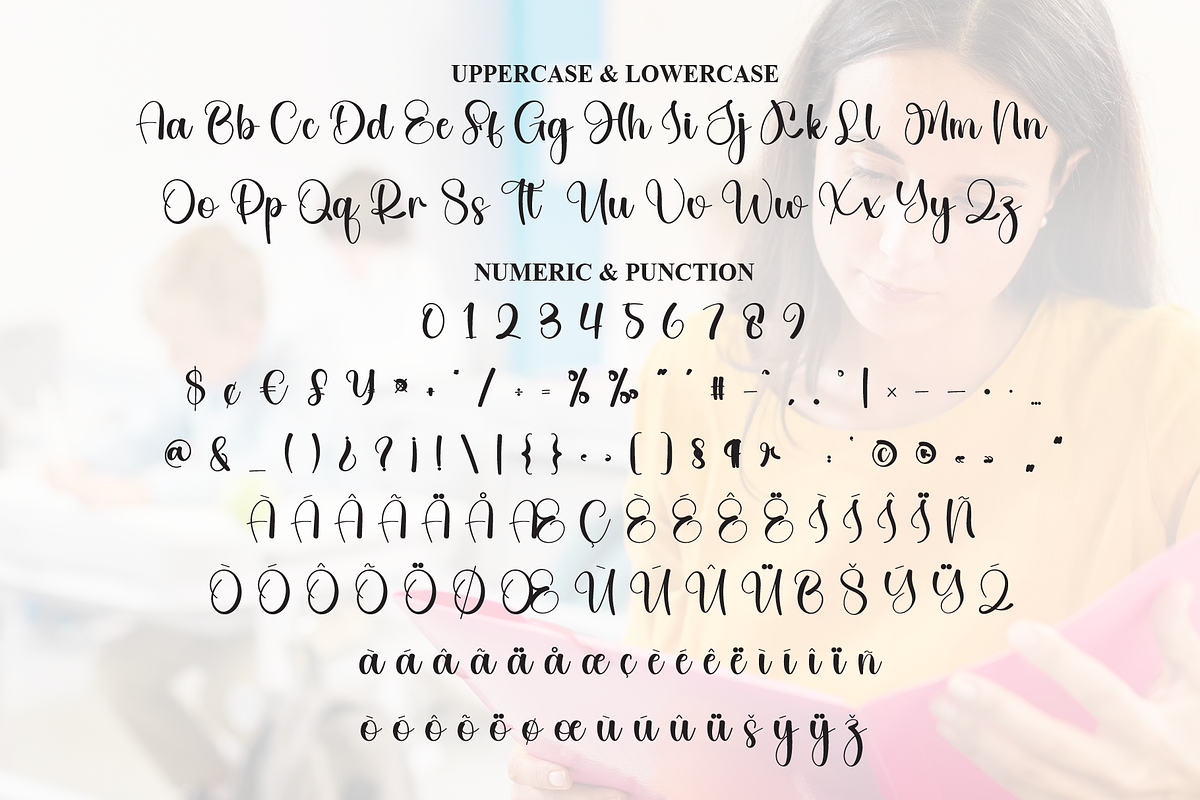 UPPERCASE & LOWERCASE
Aa Bb Cc Dd Ee Ff Gg Hh Ii Jj Kk Ll Mm Nn
Oo Pp Qq Rr Ss Tt Uu Vv Ww Xx Yy Zz
NUMERIC & PUNCTION
0 1 2 3 4 5 6 7 8 9
$ ¢ € £ ¥ ¤ + ° / ÷ = % ‰ " ' # – ^ , . ° | × – — • · …
@ & _ ( ) ¿ ? ¡ ! \ | { } ‹ › [ ] § ¶ : ' © ® « » „ “
À Á Â Ã Ä Å Æ Ç È É Ê Ë Ì Í Î Ï Ñ
Ò Ó Ô Õ Ö Ø Œ Ù Ú Û Ü B Š Ý Ÿ Ž
à á â ã ä å æ ç è é ê ë ì í î ï ñ
ò ó ô õ ö ø œ ù ú û ü š ý ÿ ž